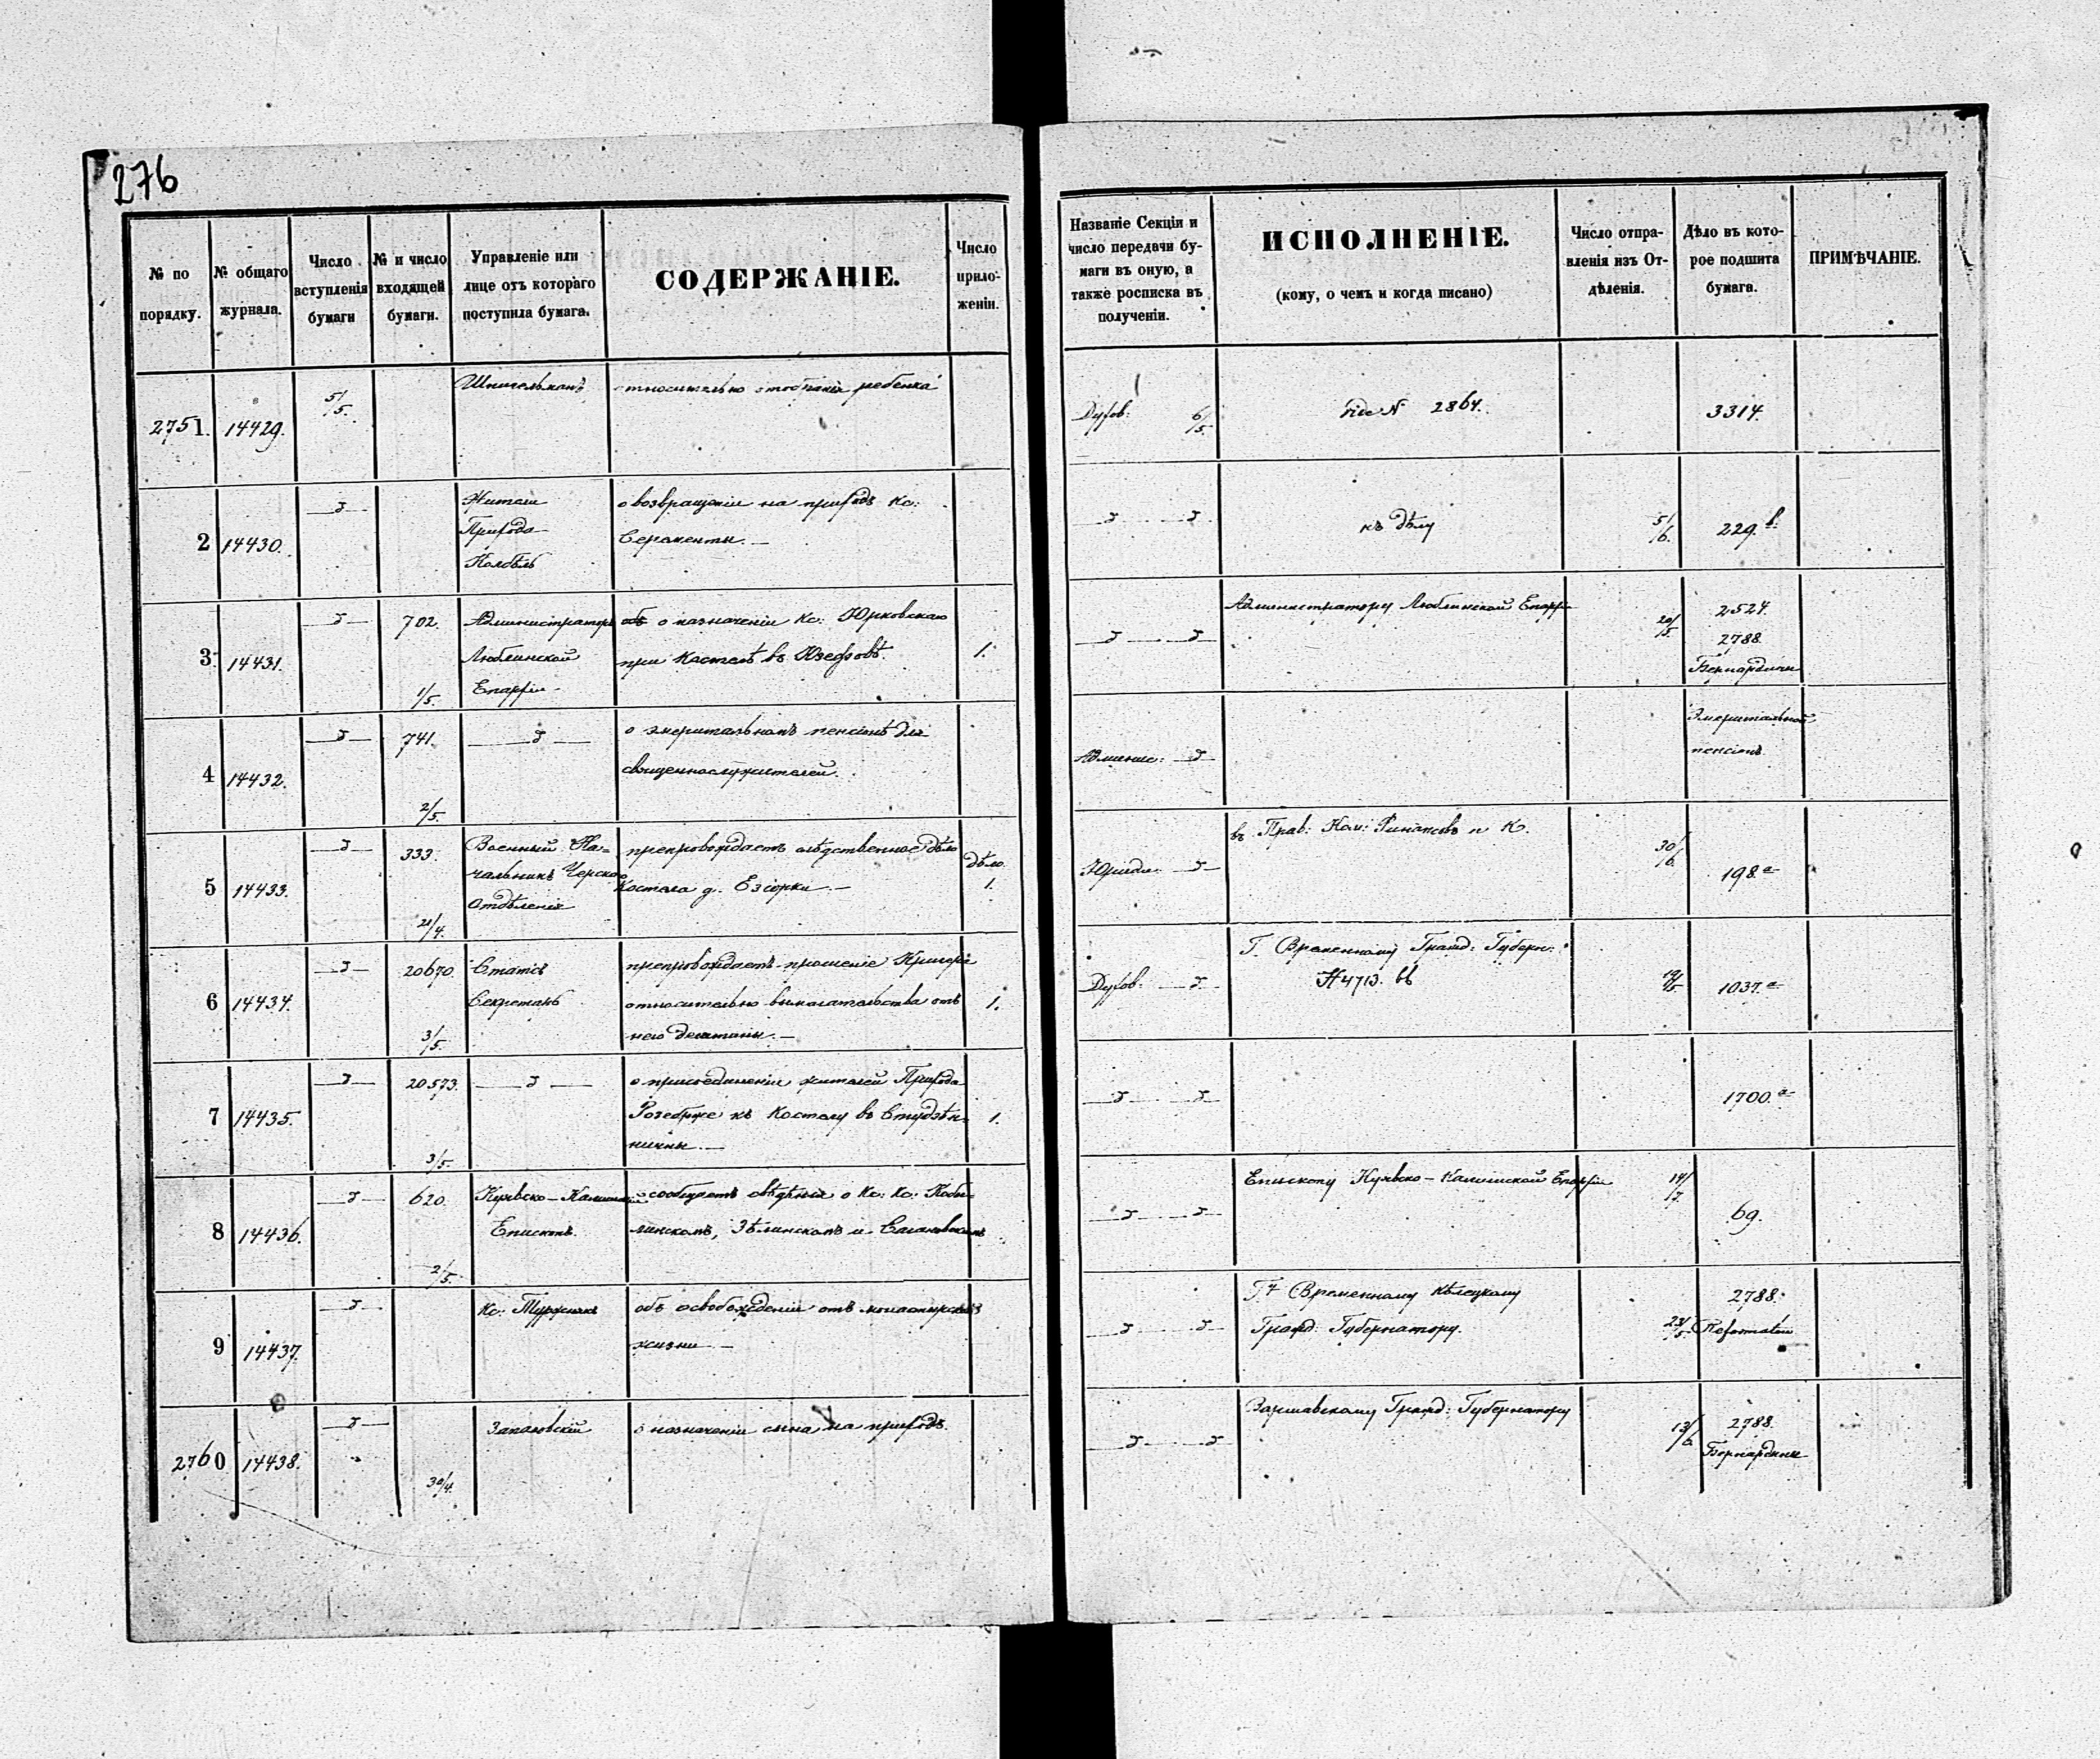 276
№ по порядку.
№ общаго журнала.
Число вступленія бумаги
№ и число входящей бумаги.
Управленіе или лице отъ котораго поступила бумага.
СОДЕРЖАНІЕ.
Число приложеніи.
Названіе Секціи и число передачи бумаги въ оную, а также росписка въ полученіи.
ИСПОЛНЕНІЕ.
(кому, о чемъ и когда писано)
Число отправленія изъ Отдѣленія.
Дѣло въ которое подшита бумага.
ПРИМѢЧАНІЕ.
2751. 14429. 5/5. относительно ребенка
Духов: 6/5. vide N 2864. 3314.
2 14430. Жители
Прихода
Колбѣль
о возвращеніи на приходъ Кс:
къ дѣлу 5/6. 229.
3. 14431. 702. 1/5. Администраторъ
Люблинской
Епархіи
о назначеніи Кс: Юрковскаго
при Костелѣ въ Юзефовѣ. 1.
Администратору Люблинской Епархіи 20/5. 2524.
2788.
Бернардины
4 14432. 741. 2/5. о эмеритальномъ пенсіонѣ для
священнослужителей.
Админис: Эмеритальной
пенсіонъ
5 14433. 333. 21/4. Военный На=
чальникъ Черскаго
Отдѣленія
препровождаетъ слѣдственное дѣло
Костела д. Езіорки. дѣло.
1.
Юридич: въ Прав: Ком: Финансовъ и К. 30/6. 198.а
6 14434. 20670. 3/5. Статсъ
Секретарь
препровождаетъ прошеніе
относительно вымогательства отъ
него десятины. 1.
Духов: Г. Временному Гражд: Губерн:
N 4713. 19/5. 1037.а
7 14435. 20573. 3/5. о присоединеніи жителей Прихода
къ Костелу въ Студзѣн=
ничны. 1.
1700.а
8 14436. 620. 2/5. Куявско-Калишскій
Епископъ.
сообщаетъ свѣдѣнія о Кс: Кс: Кобы=
линскомъ, Зѣлинскомъ и
Епископу Куявско-Калишской Епархіи 14/7. 69.
9 14437. Кс:
объ освобожденіи отъ монастырской
жизни
Временному Кѣлецкому
Гражд: Губернатору. 23/5. 2788.
Reformatów
2760 14438. 30/4.
о назначеніи сына на приходъ.
Варшавскому Гражд: Губернатору 13/6. 2788.
Бернардины